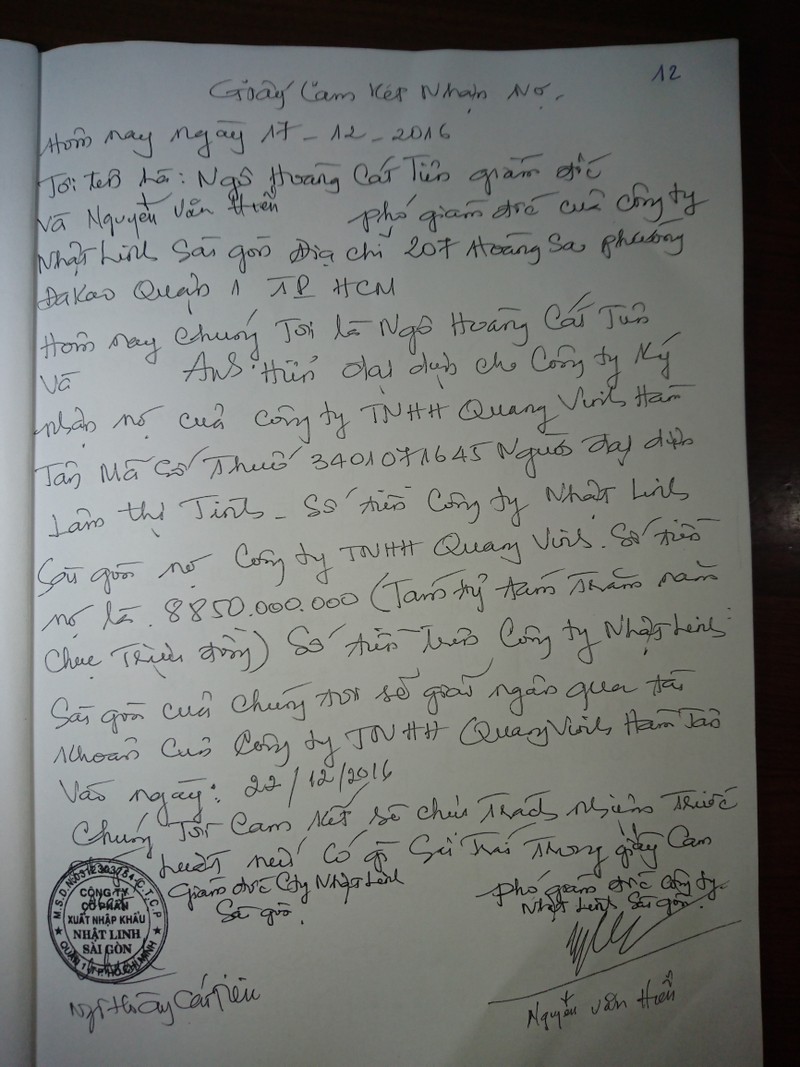 12
Giấy Cam Kết Nhận Nợ.
Hôm nay ngày 17-12-2016
Tôi tên là: Ngô Hoàng Cát Tiên giám đốc
và Nguyễn Văn Hiển phó giám đốc của công ty
Nhật Linh Sài gòn Địa chỉ 207 Hoàng Sa phường
Đakao Quận 1 TP HCM
Hôm nay chúng Tôi là Ngô Hoàng Cát Tiên
Và Hiển đại diện cho Công ty Ký
nhận nợ của công ty TNHH Quang Vinh Hàm
Tân Mã Số Thuế 3401071645 Người đại diện
Lâm thị Tinh - Số tiền Công ty Nhật Linh
Sài gòn nợ Công ty TNHH Quang Vinh. Số tiền
nợ là. 8850.000.000 (Tám tỷ tám Trăm năm
Chục Triệu đồng) Số tiền trên Công ty Nhật Linh
Sài gòn của chúng tôi sẽ giải ngân qua tài
Khoản Của Công ty TNHH Quang Vinh Hàm Tân
Vào ngày: 22/12/2016
Chúng Tôi Cam Kết sẽ chịu Trách nhiệm Trước
luật nếu có gì Sai Trái Trong giấy Cam
Giám đốc Cty Nhật Linh
Sài gòn.
phó giám đốc công ty
Nhật Linh Sài gòn.
CÔNG TY
CỔ PHẦN
XUẤT NHẬP KHẨU
NHẬT LINH
SÀI GÒN
QUẬN 1 T.P. HỒ CHÍ MINH
Ngô Hoàng Cát Tiên
Nguyễn Văn Hiển